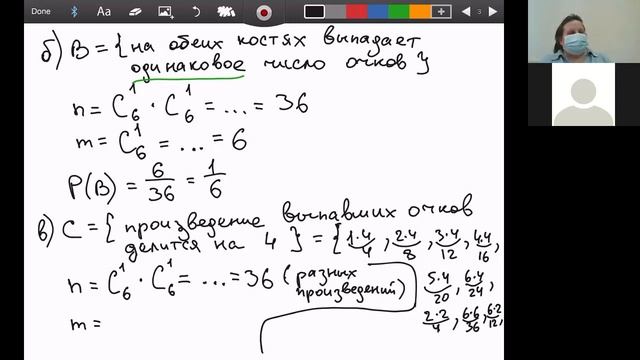 Done Aa 3
б) B = { на обеих костях выпадает
одинаковое число очков }
n = C₆¹ · C₆¹ = ... = 36
m = C₆¹ = ... = 6
P(B) = 6/36 = 1/6
в) C = { произведение выпавших очков
делится на 4 } = { 1·4 4, 2·4 8, 3·4 12, 4·4 16,
n = C₆¹ · C₆¹ = ... = 36 (разных произведений)
5·4 20, 6·4 24,
2·2 4, 6·6 36, 6·2 12,
m =